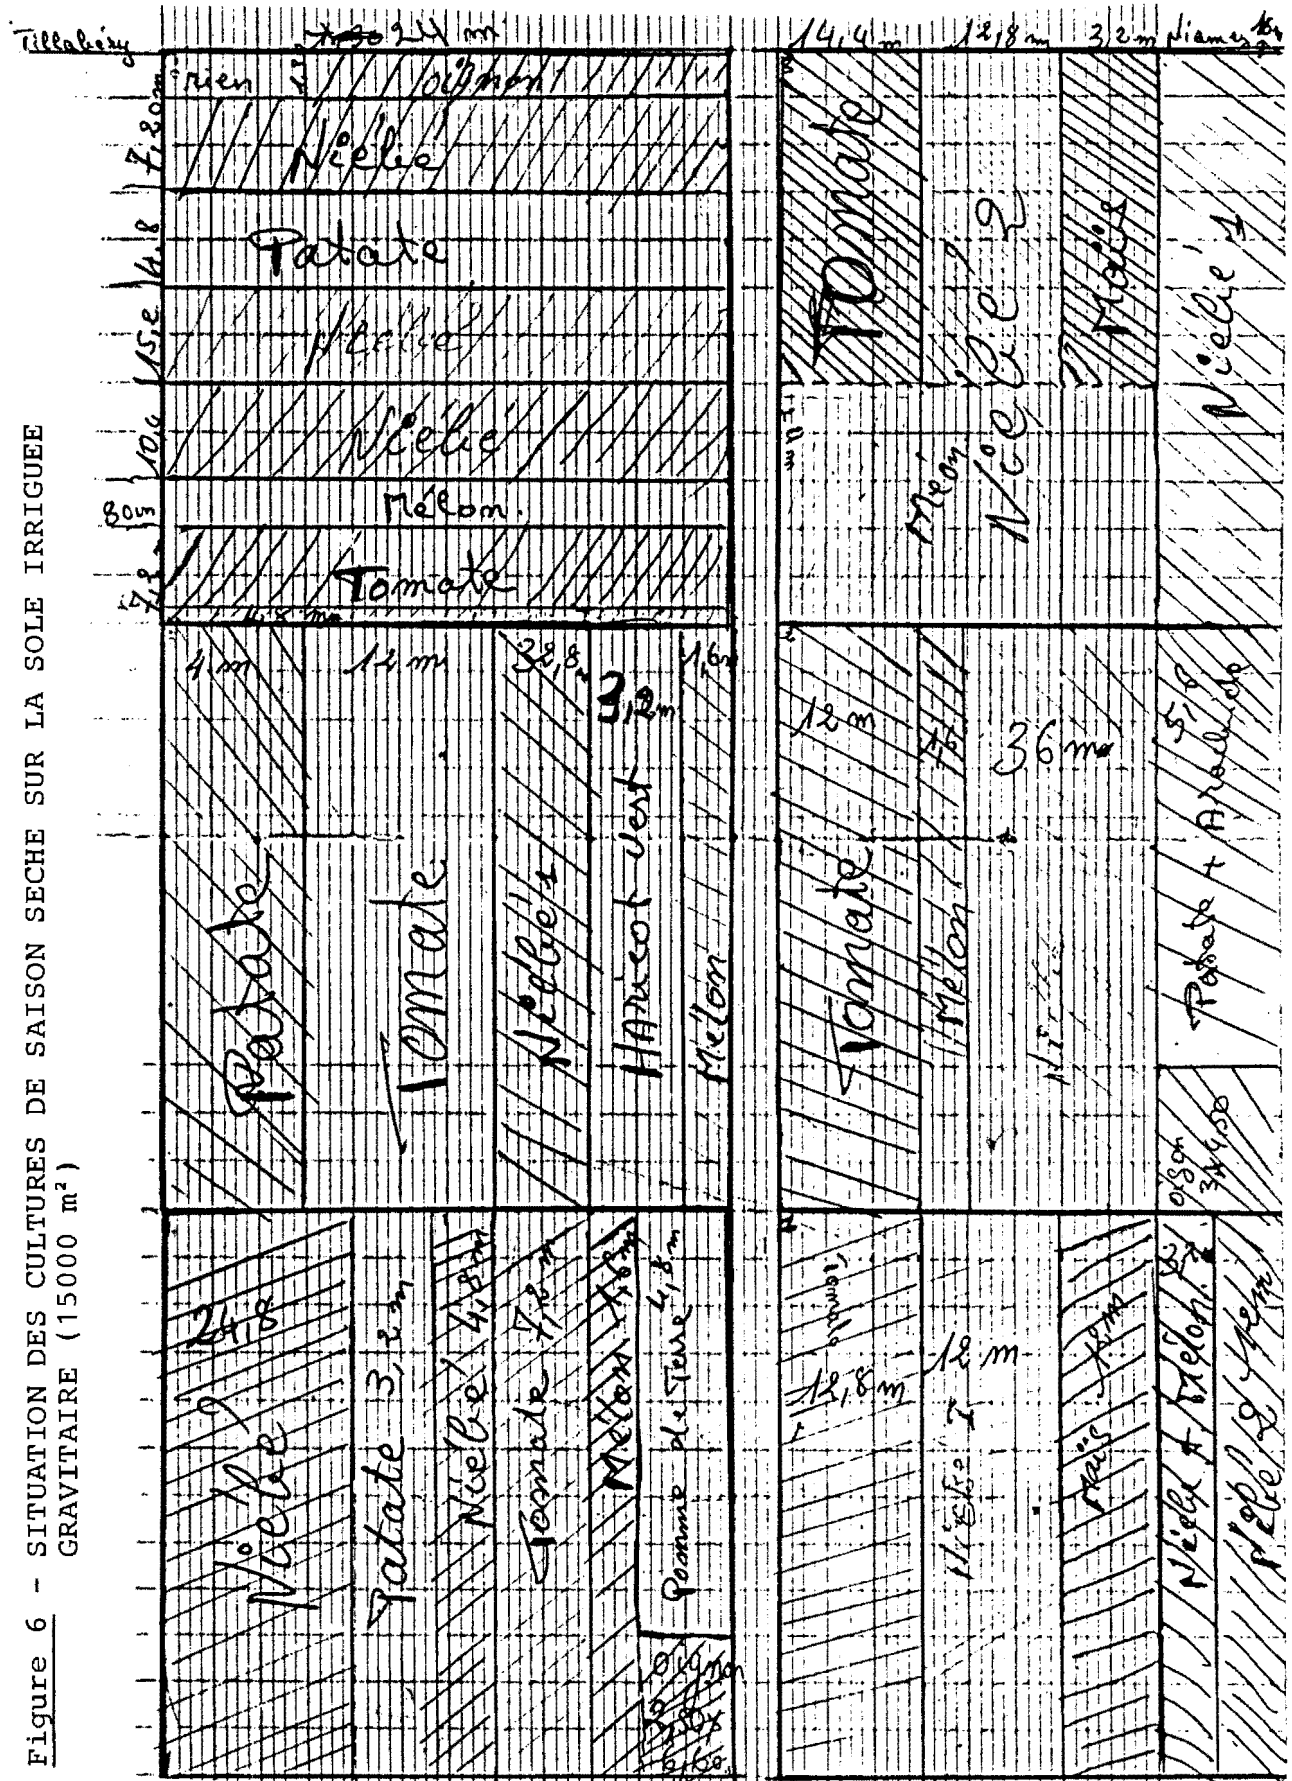 Figure 6 - SITUATION DES CULTURES DE SAISON SECHE SUR LA SOLE IRRIGUEE
GRAVITAIRE (15000 m²)
Tillabéry
24 m
rien
oignon
7,20m
Niébé
4,8
Patate
Niébé
10,4
Niébé
Mélon.
7,2
Tomate
4,8 m
14,4 m
12,8 m
3,2 m
Niamey
Tomate
Niébé 2
Maïs
Niébé 1
Méon
4 m
12 m
32,8m
3,2m
1,6m
Patate
Tomate
Niébé 1
HAricot vert
Mélon
12 m
1,6
36 m
5,6
Tomate
Mélon
Niébé
Patate + Arachide
oignon
24,8
Niébé 2
Patate 3,2 m
Niébé 4,8m
Tomate 7,2 m
Mélon 1,6m
Pomme de Terre 4,8 m
Oignon
Tomate
12,8 m
12 m
Niébé I
Maïs
Niébé + Mélon
Niébé 2